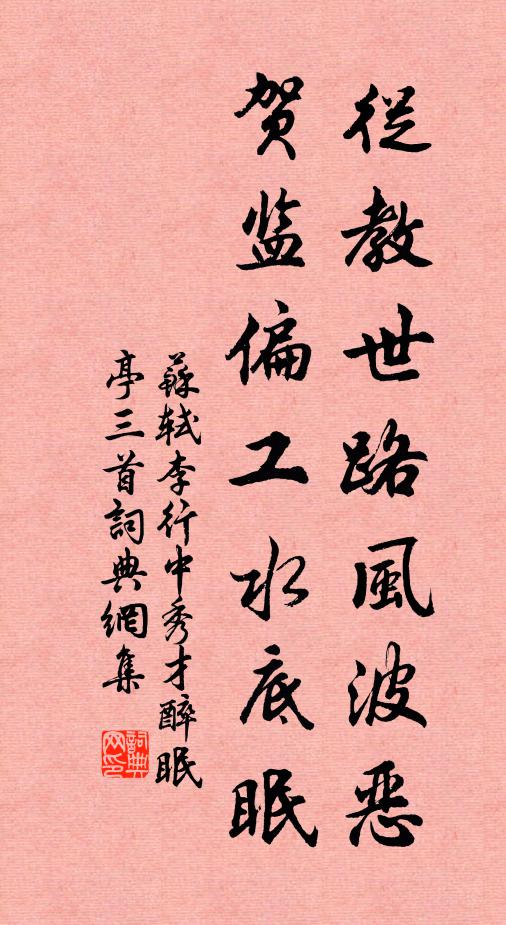 從教世路風波恶
贺监偏工水底眠
蘇轼李行中秀才醉眠
亭三首詞典網集
詞典
网印